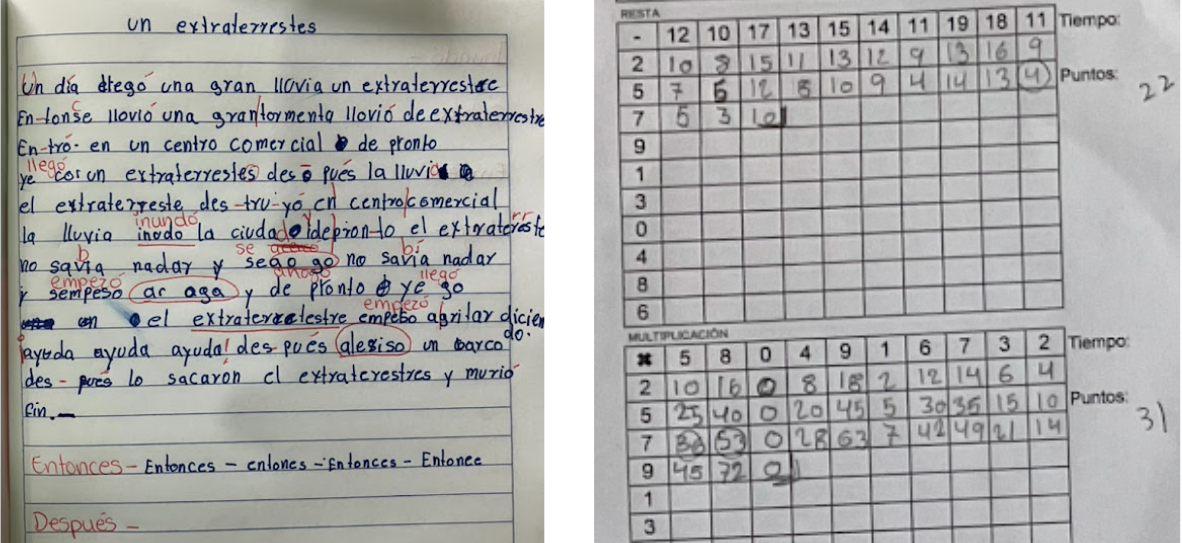 un extraterrestes
Un día llegó una gran lluvia un extraterreste
En-tonse llovió una gran tormenta llovió de extraterrestre
En-tró. en un centro comercial de pronto
llegó
ye co un extraterrestes des pués la lluvia
el extraterreste des-tru-yó en centro comercial
inundó
la lluvia inodo la ciudad de pron-to el extraterreste
se
b
ahogó
bí
no savia nadar y sego go no savia nadar
empezó
llegó
y sempeso ar aga y de pronto ye go
empezó
en el extraterrestre empeso agritar dicien
do.
ayuda ayuda ayuda! des-pués alesiso un barco
des-pués lo sacaron el extraterestres y murio
fin.
Entonces - Entonces - entones - Entonces - Entonce
Después -
RESTA
- 12 10 17 13 15 14 11 19 18 11 Tiempo:
2 10 8 15 11 13 12 9 13 16 9
5 7 5 12 8 10 9 4 14 13 4 Puntos: 22
7 5 3 10
9
1
3
0
4
8
6
MULTIPLICACIÓN
✖ 5 8 0 4 9 1 6 7 3 2 Tiempo:
2 10 16 0 8 18 2 12 14 6 4
5 25 40 0 20 45 5 30 35 15 10 Puntos: 31
7 36 53 0 28 63 7 42 49 21 14
9 45 72 0
1
3